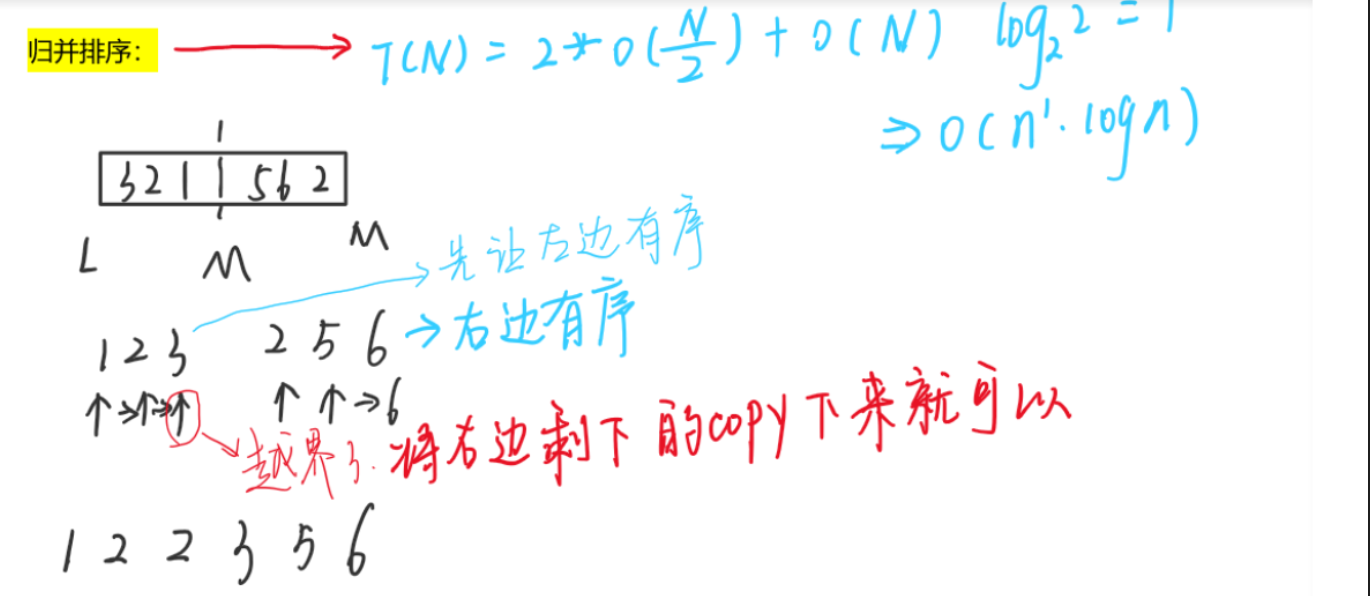 归并排序： → T(N) = 2*O(N/2) + O(N) log₂2 = 1
⇒ O(n¹·logn)
3 2 1 | 5 6 2
L M M
→ 先让左边有序
1 2 3 2 5 6 → 右边有序
↑→↑→↑ ↑ ↑→6
→ 越界了. 将右边剩下的copy下来就可以
1 2 2 3 5 6